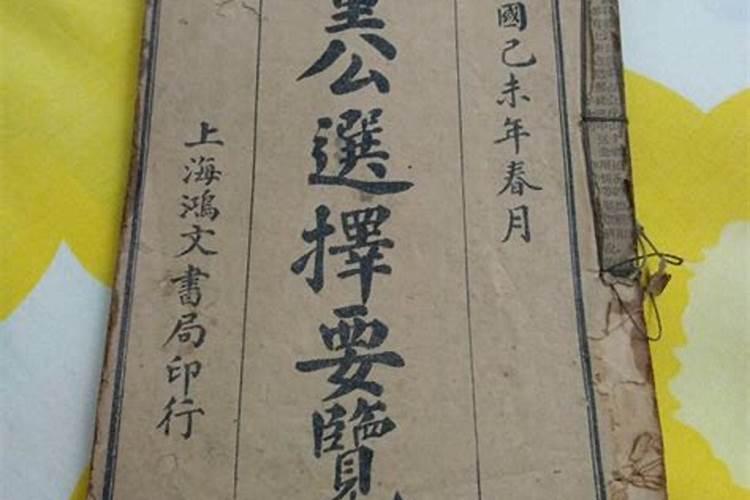 國己未年春月
公選擇要覽
上海鴻文書局印行